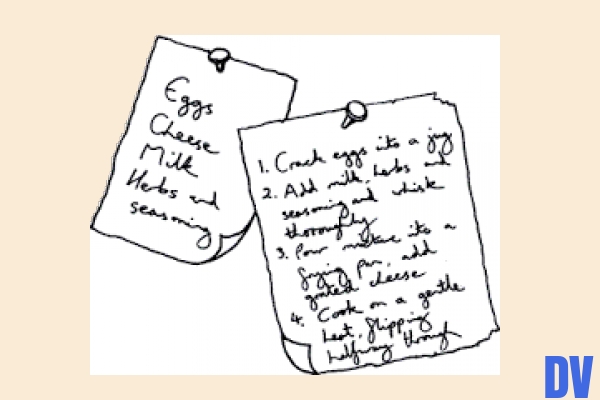 Eggs
Cheese
Milk
Herbs and
seasoning
1. Crack eggs into a jug
2. Add milk, herbs and
seasoning and whisk
thoroughly
3. Pour mixture into a
frying pan, add
grated cheese
4. Cook on a gentle
heat, flipping
halfway through
DV